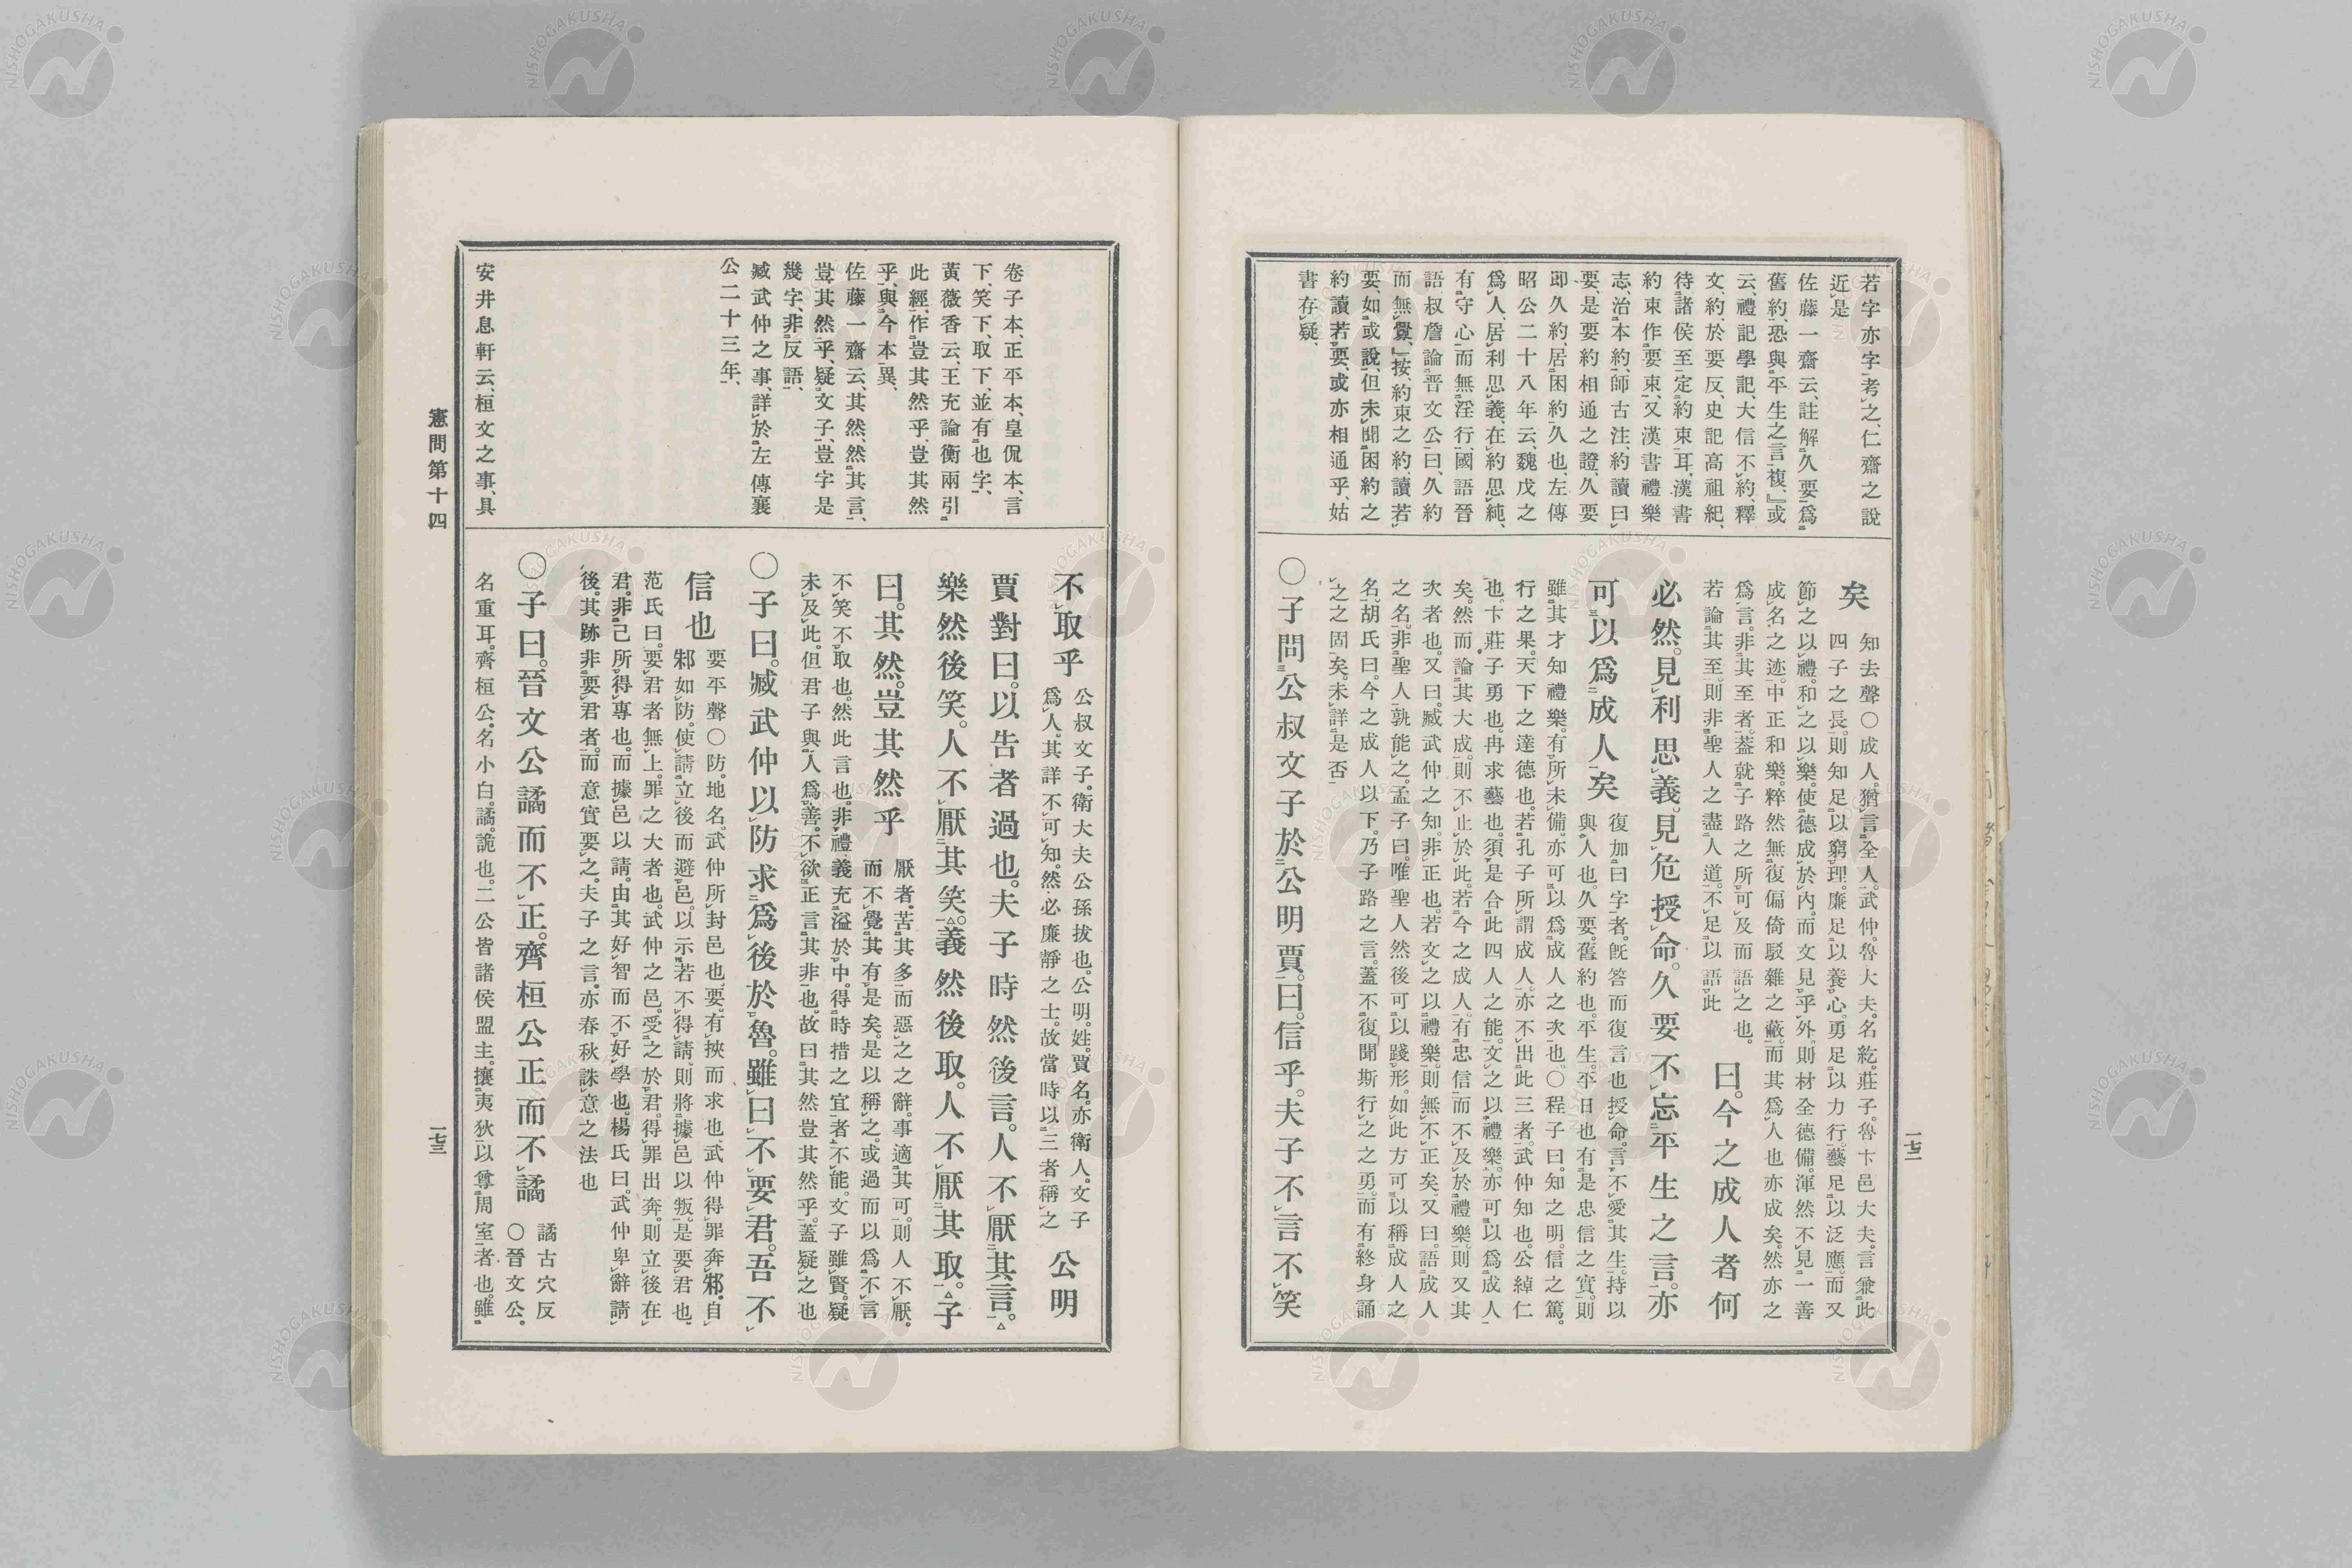 若字亦字考之、仁齋之說
近是
佐藤一齋云、註解久要爲
舊約、恐與平生之言複、』或
云、禮記學記、大信不約、釋
文約、於要反、史記高祖紀、
待諸侯至定約束耳、漢書
約束作要束、又漢書禮樂
志、治本約、師古注、約讀曰
要、是要約相通之證、久要
即久約、居困約久也、左傳
昭公二十八年云、魏戊之
爲人、居利思義、在約思純、
有守心而無淫行、國語晉
語叔詹論晋文公曰、久約
而無釁、』按、約束之約、讀若
要、如或說、但未聞困約之
約讀若要、或亦相通乎、姑
書存疑、
矣
知去聲○成人。猶言全人。武仲。魯大夫。名紇。莊子。魯卞邑大夫。言兼此
四子之長。則知足以窮理。廉足以養心。勇足以力行。藝足以泛應。而又
節之以禮。和之以樂。使德成於內。而文見乎外。則材全德備。渾然不見一善
成名之迹。中正和樂。粹然無復偏倚駁雜之蔽。而其爲人也亦成矣。然亦之
爲言。非其至者。蓋就子路之所可及而語之也。
若論其至。則非聖人之盡人道。不足以語此
曰。今之成人者何
必然。見利思義。見危授命。久要不忘平生之言。亦
可以爲成人矣
復加曰字者。既答而復言也授命。言不愛其生。持以
與人也。久要。舊約也。平生。平日也有是忠信之實。則
雖其才知禮樂。有所未備。亦可以爲成人之次也。○程子曰。知之明。信之篤。
行之果。天下之達德也。若孔子所謂成人。亦不出此三者。武仲知也。公綽仁
也。卞莊子勇也。冉求藝也。須是合此四人之能。文之以禮樂。亦可以爲成人
矣。然而論其大成。則不止於此。若今之成人。有忠信而不及於禮樂。則又其
次者也。又曰。臧武仲之知。非正也。若文之以禮樂。則無不正矣。又曰。語成人
之名。非聖人孰能之。孟子曰。唯聖人然後可以踐形。如此方可以稱成人之
名。胡氏曰。今之成人以下。乃子路之言。蓋不復聞斯行之之勇。而有終身誦
之之固矣。未詳是否
○子問公叔文子於公明賈。曰。信乎。夫子不言不笑
一七二
不取乎
公叔文子。衛大夫公孫拔也。公明。姓。賈名。亦衛人。文子
爲人。其詳不可知。然必廉靜之士。故當時以三者稱之
公明
賈對曰。以告者過也。夫子時然後言。人不厭其言。
樂然後笑。人不厭其笑。義然後取。人不厭其取。子
曰。其然。豈其然乎
厭者。苦其多而惡之之辭。事適其可。則人不厭。
而不覺其有是矣。是以稱之。或過而以爲不言
不笑不取也。然此言也。非禮義充溢於中。得時措之宜者。不能。文子雖賢。疑
未及此。但君子與人爲善。不欲正言其非也。故曰其然豈其然乎。蓋疑之也
○子曰。臧武仲以防求爲後於魯。雖曰不要君。吾不
信也
要平聲○防。地名。武仲所封邑也。要。有挾而求也。武仲得罪奔邾。自
邾如防。使請立後而避邑。以示若不得請。則將據邑以叛。是要君也。
范氏曰。要君者無上。罪之大者也。武仲之邑。受之於君。得罪出奔。則立後在
君。非己所得專也。而據邑以請。由其好智而不好學也。楊氏曰。武仲卑辭請
後。其跡非要君者。而意實要之。夫子之言。亦春秋誅意之法也
○子曰。晉文公譎而不正。齊桓公正而不譎
譎古穴反
○晉文公。
名重耳。齊桓公。名小白。譎。詭也。二公皆諸侯盟主。攘夷狄以尊周室者也。雖
卷子本、正平本、皇侃本、言
下、笑下、取下、並有也字、
黃薇香云、王充論衡兩引
此經、作豈其然乎、豈其然
乎、與今本異、
佐藤一齋云、其然、然其言、
豈其然乎、疑文子、豈字是
幾字、非反語、
臧武仲之事、詳於左傳襄
公二十三年、
安井息軒云、桓文之事、具
憲問第十四
一七三